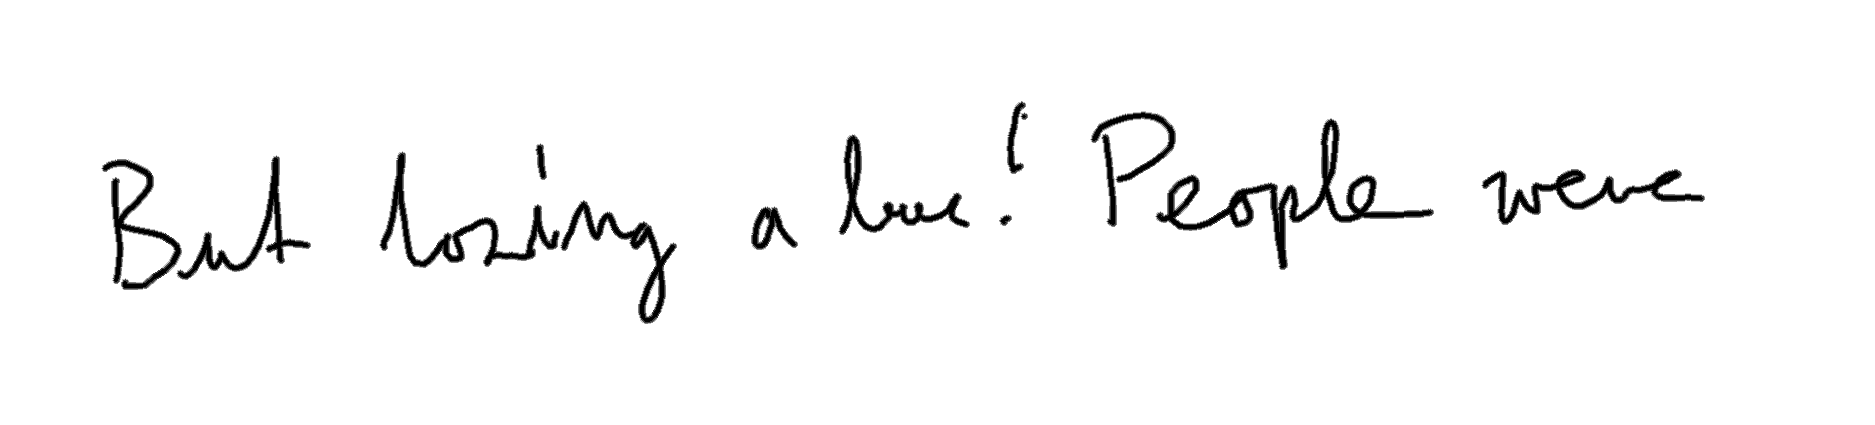 But losing a People were